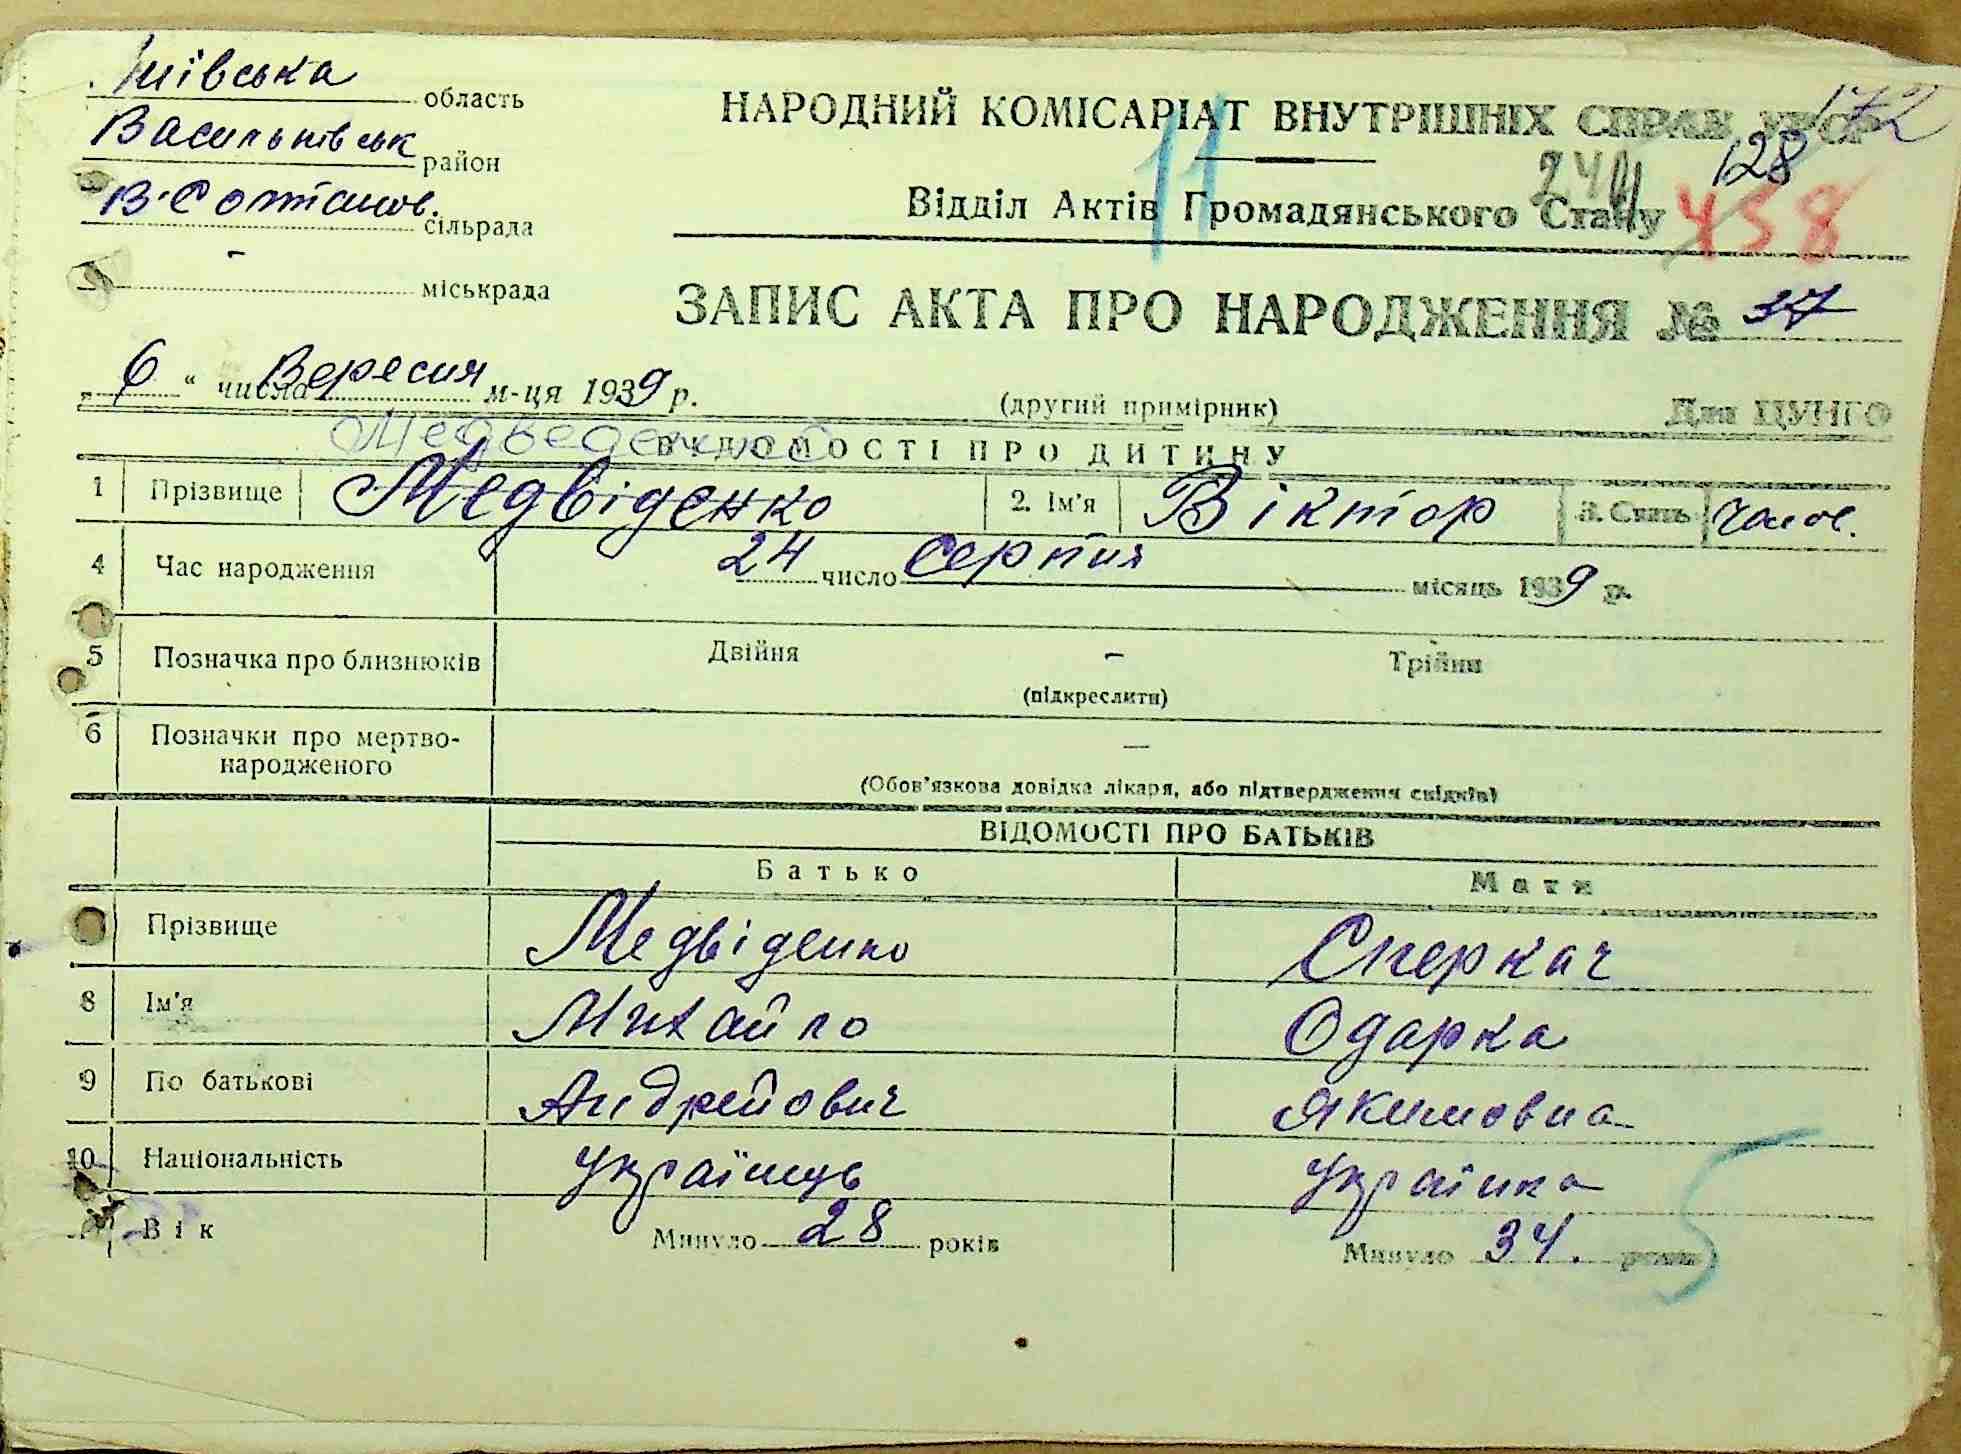 Київська область
Васильківськ район
В-Солтанов. сільрада
- міськрада
НАРОДНИЙ КОМІСАРІАТ ВНУТРІШНІХ СПРАВ УРСР
172
11
244
128
438
Відділ Актів Громадянського Стану
ЗАПИС АКТА ПРО НАРОДЖЕННЯ № 37
„6“ числа Вересня м-ця 1939 р.
(другий примірник)
Для ЦУНГО
Медведенко
ВІДОМОСТІ ПРО ДИТИНУ
1 Прізвище Медвіденко 2. Ім'я Віктор 3. Стать чолов.
4 Час народження 24 число Серпня місяць 1939 р.
5 Позначка про близнюків Двійня - Трійня
(підкреслити)
6 Позначки про мертво-
народженого —
(Обов'язкова довідка лікаря, або підтвердження свідків)
ВІДОМОСТІ ПРО БАТЬКІВ
Батько Мати
Прізвище Медвіденко Сперкач
8 Ім'я Михайло Одарка
9 По батькові Андрейович Якимовна
10 Національність Українець Українка
Вік Минуло 28 років Минуло 34. років
5